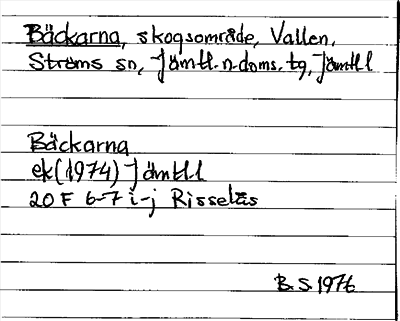 Bäckarna, skogsområde, Vallen,
Ströms sn, Jämtl. n. doms. tg, Jämtl l
Bäckarna
ek (1974) Jämtl l
20 F 6-7 i-j Risselås
B. S. 1976